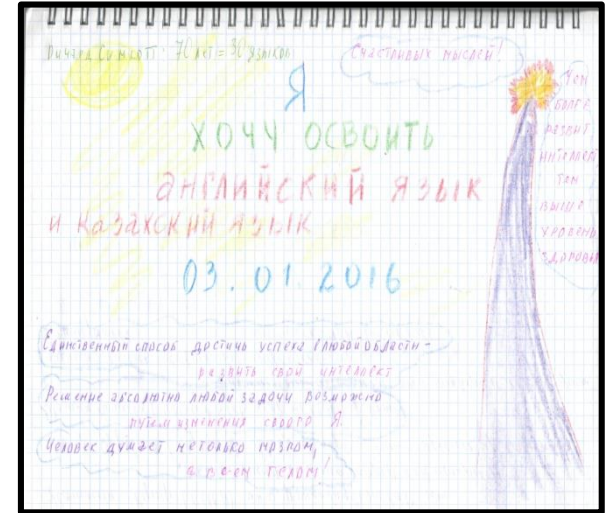 Ричард Симкотт: 70 лет = 30 языков
Счастливых мыслей!
Я
хочу освоить
английский язык
и казахский язык
03.01.2016
Чем
более
развит
интеллект
тем
выше
уровень
здоровья
Единственный способ достичь успеха в любой области –
развить свой интеллект
Решение абсолютно любой задачи возможно
путем изменения своего Я.
Человек думает нетолько мозгом,
а всем телом!